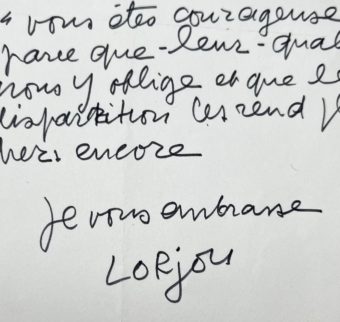 vous êtes courageuse
parce que-leur-qual
nous y oblige et que le
disparition les rend
hers encore
Je vous embrasse
LORjou